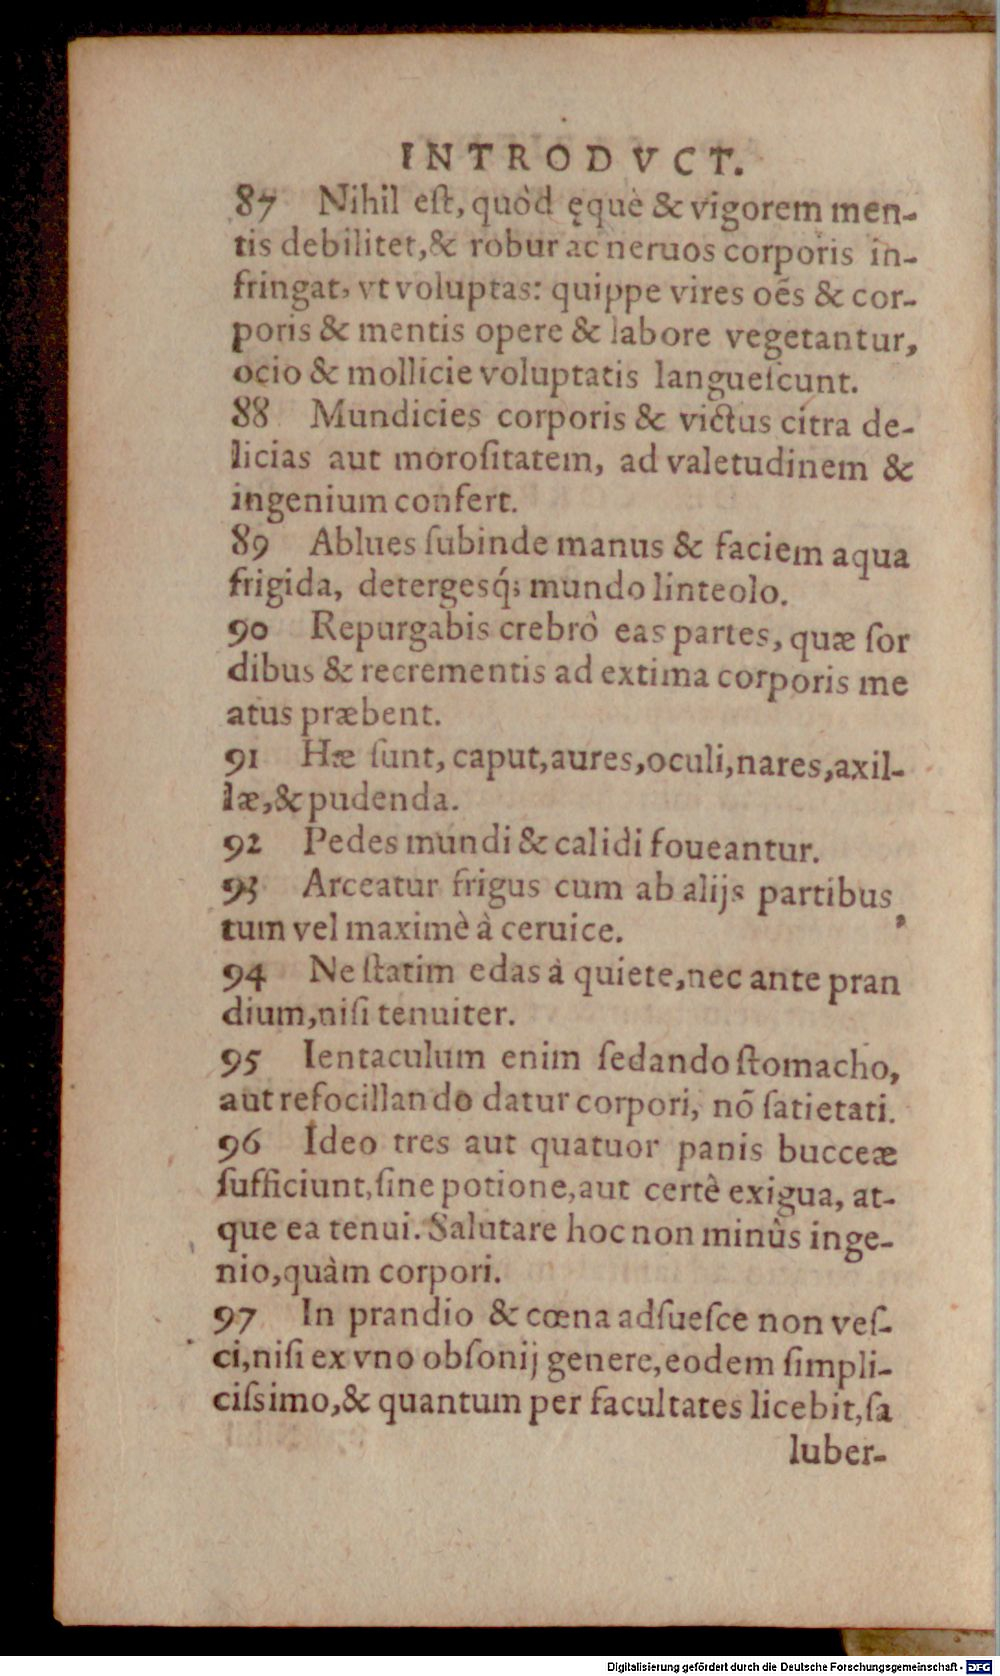 INTRODVCT.
87 Nihil eſt, quòd ęquè & vigorem men-
tis debilitet,& robur ac neruos corporis in-
fringat, vt voluptas: quippe vires oẽs & cor-
poris & mentis opere & labore vegetantur,
ocio & mollicie voluptatis langueſcunt.
88 Mundicies corporis & victus citra de-
licias aut moroſitatem, ad valetudinem &
ingenium confert.
89 Ablues ſubinde manus & faciem aqua
frigida, detergesq́; mundo linteolo.
90 Repurgabis crebrò eas partes, quæ ſor
dibus & recrementis ad extima corporis me
atus præbent.
91 Hæ ſunt, caput,aures,oculi,nares,axil-
læ,& pudenda.
92 Pedes mundi & calidi foueantur.
93 Arceatur frigus cum ab alijs partibus
tum vel maximè à ceruice.
94 Ne ſtatim edas à quiete,nec ante pran
dium,niſi tenuiter.
95 Ientaculum enim ſedando ſtomacho,
aut refocillando datur corpori, nõ ſatietati.
96 Ideo tres aut quatuor panis bucceæ
ſufficiunt,ſine potione,aut certè exigua, at-
que ea tenui. Salutare hoc non minùs inge-
nio,quàm corpori.
97 In prandio & cœna adſueſce non veſ-
ci,niſi ex vno obſonij genere,eodem ſimpli-
ciſsimo,& quantum per facultates licebit,ſa
luber-
Digitalisierung gefördert durch die Deutsche Forschungsgemeinschaft - DFG